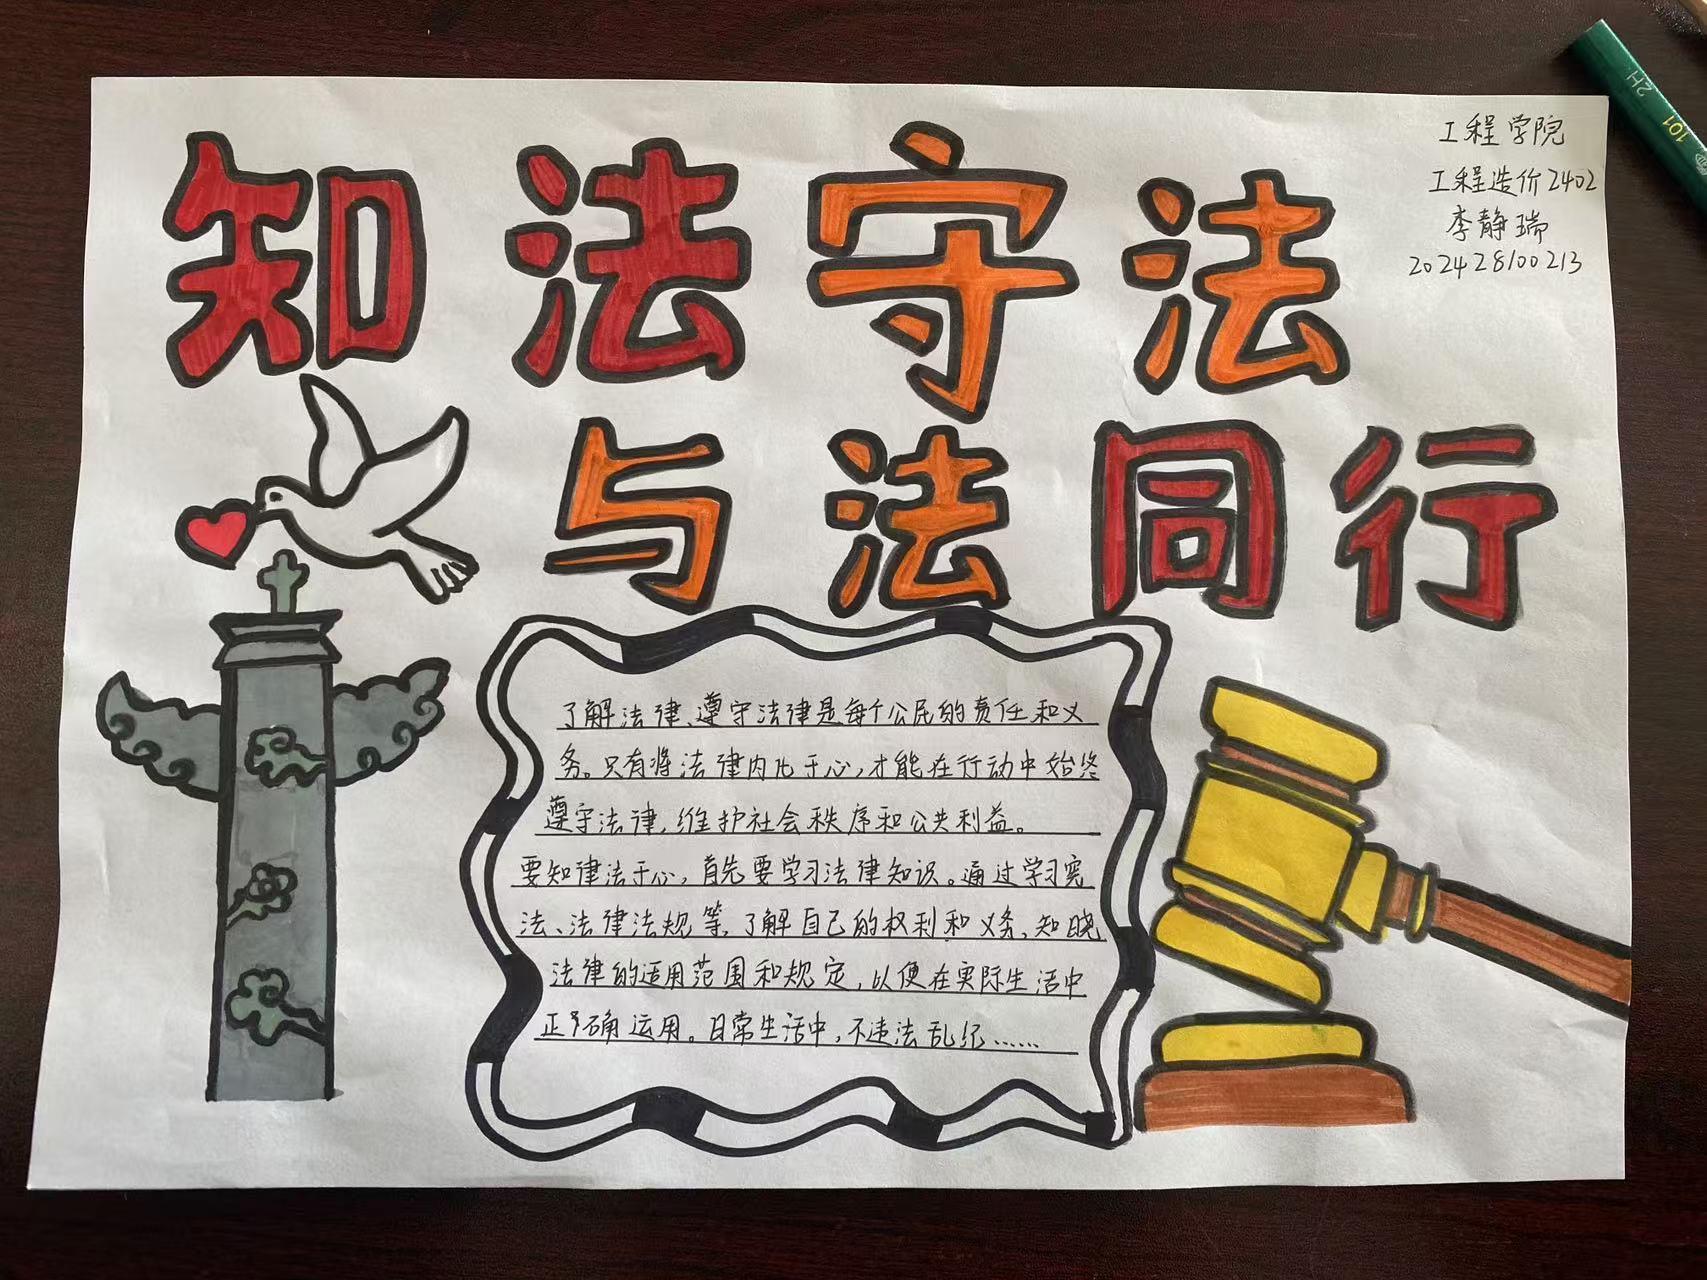 知法守法
与法同行
工程学院
工程造价2402
李静瑞
202428100213
了解法律、遵守法律是每个公民的责任和义
务。只有将法律内化于心,才能在行动中始终
遵守法律,维护社会秩序和公共利益。
要知律法于心,首先要学习法律知识。通过学习宪
法、法律法规等,了解自己的权利和义务,知晓
法律的适用范围和规定,以便在实际生活中
正确运用。日常生活中,不违法乱纪……
2H
101